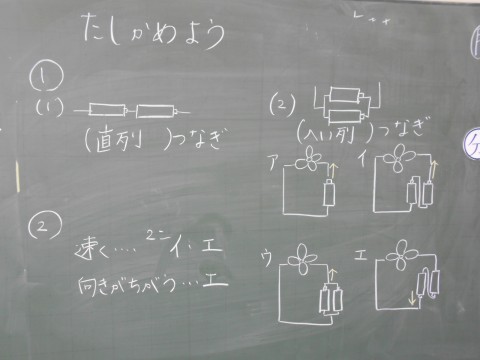 たしかめよう
①
(1)
(直列 )つなぎ
(2)
(へい列 )つなぎ
ア
イ
②
速く…‥ 2こ イ、エ
向きがちがう…エ
ウ
エ